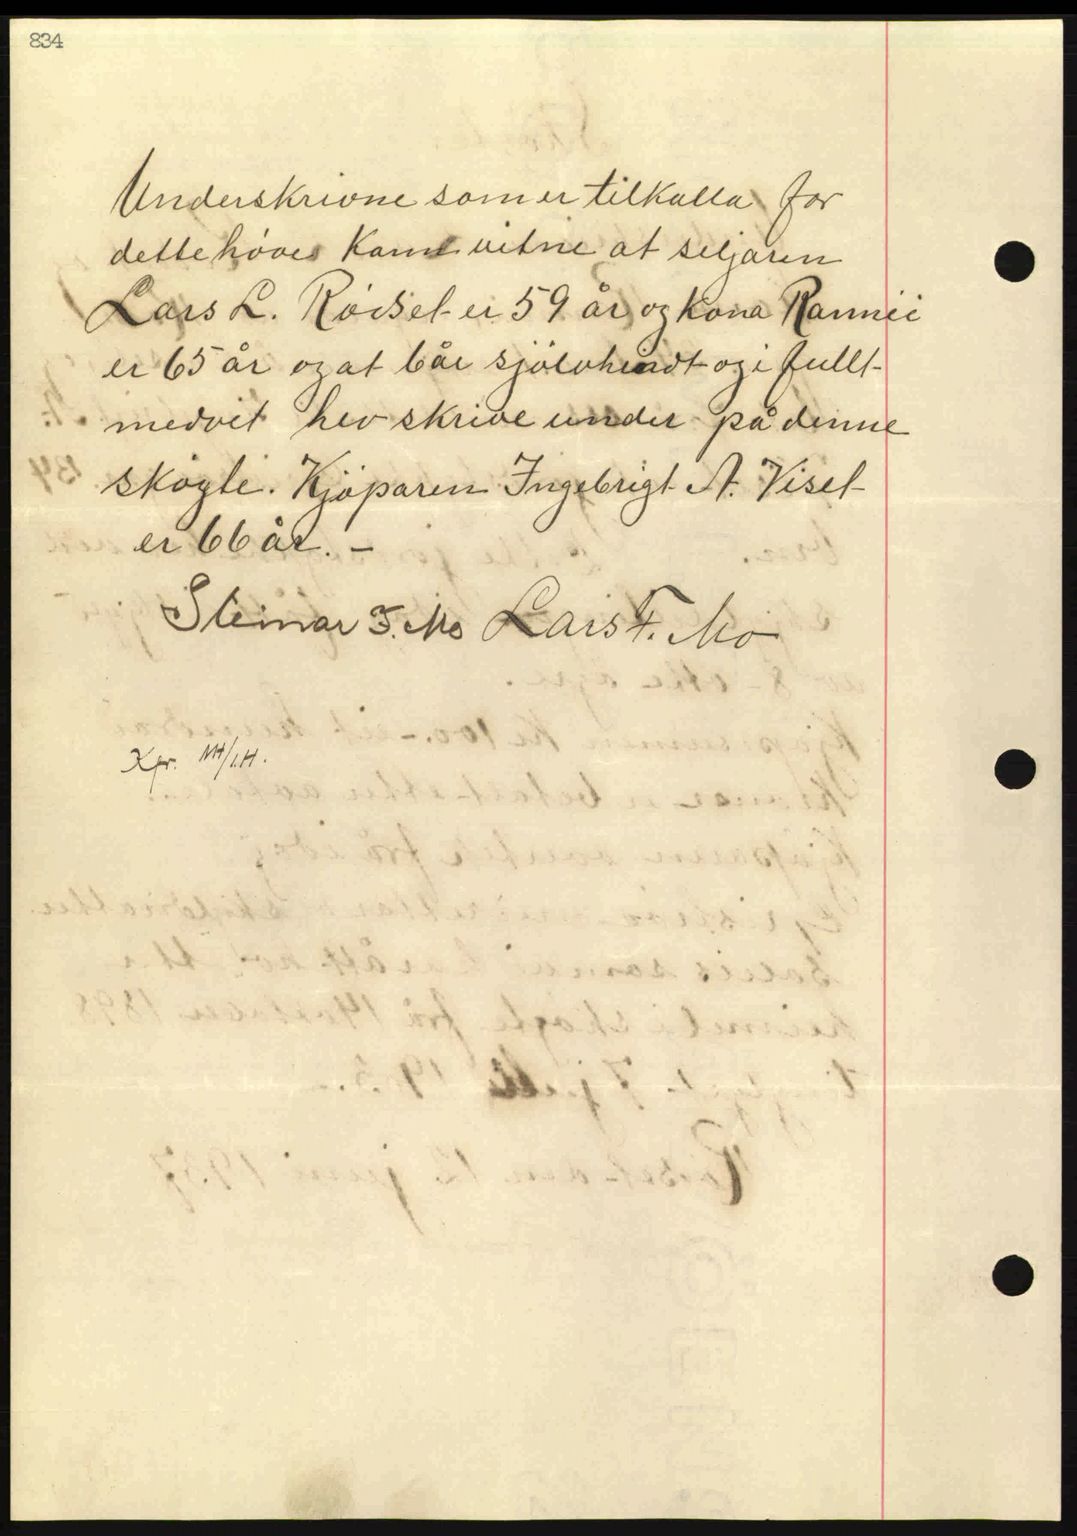 834
Underskrivne som er tilkalla for
dette høve kan vitne at seljaren
Lars L. Röisel er 59 år og kona Rannei
er 65 år og at båe sjölvhendt og i fullt
medvit hev skrive under på denne
sköyte. Kjöparen Ingebrigt A. Visel
er 66 år. —
Steinar F. Mo Lars F. Mo
Kfr. MH/I.H.